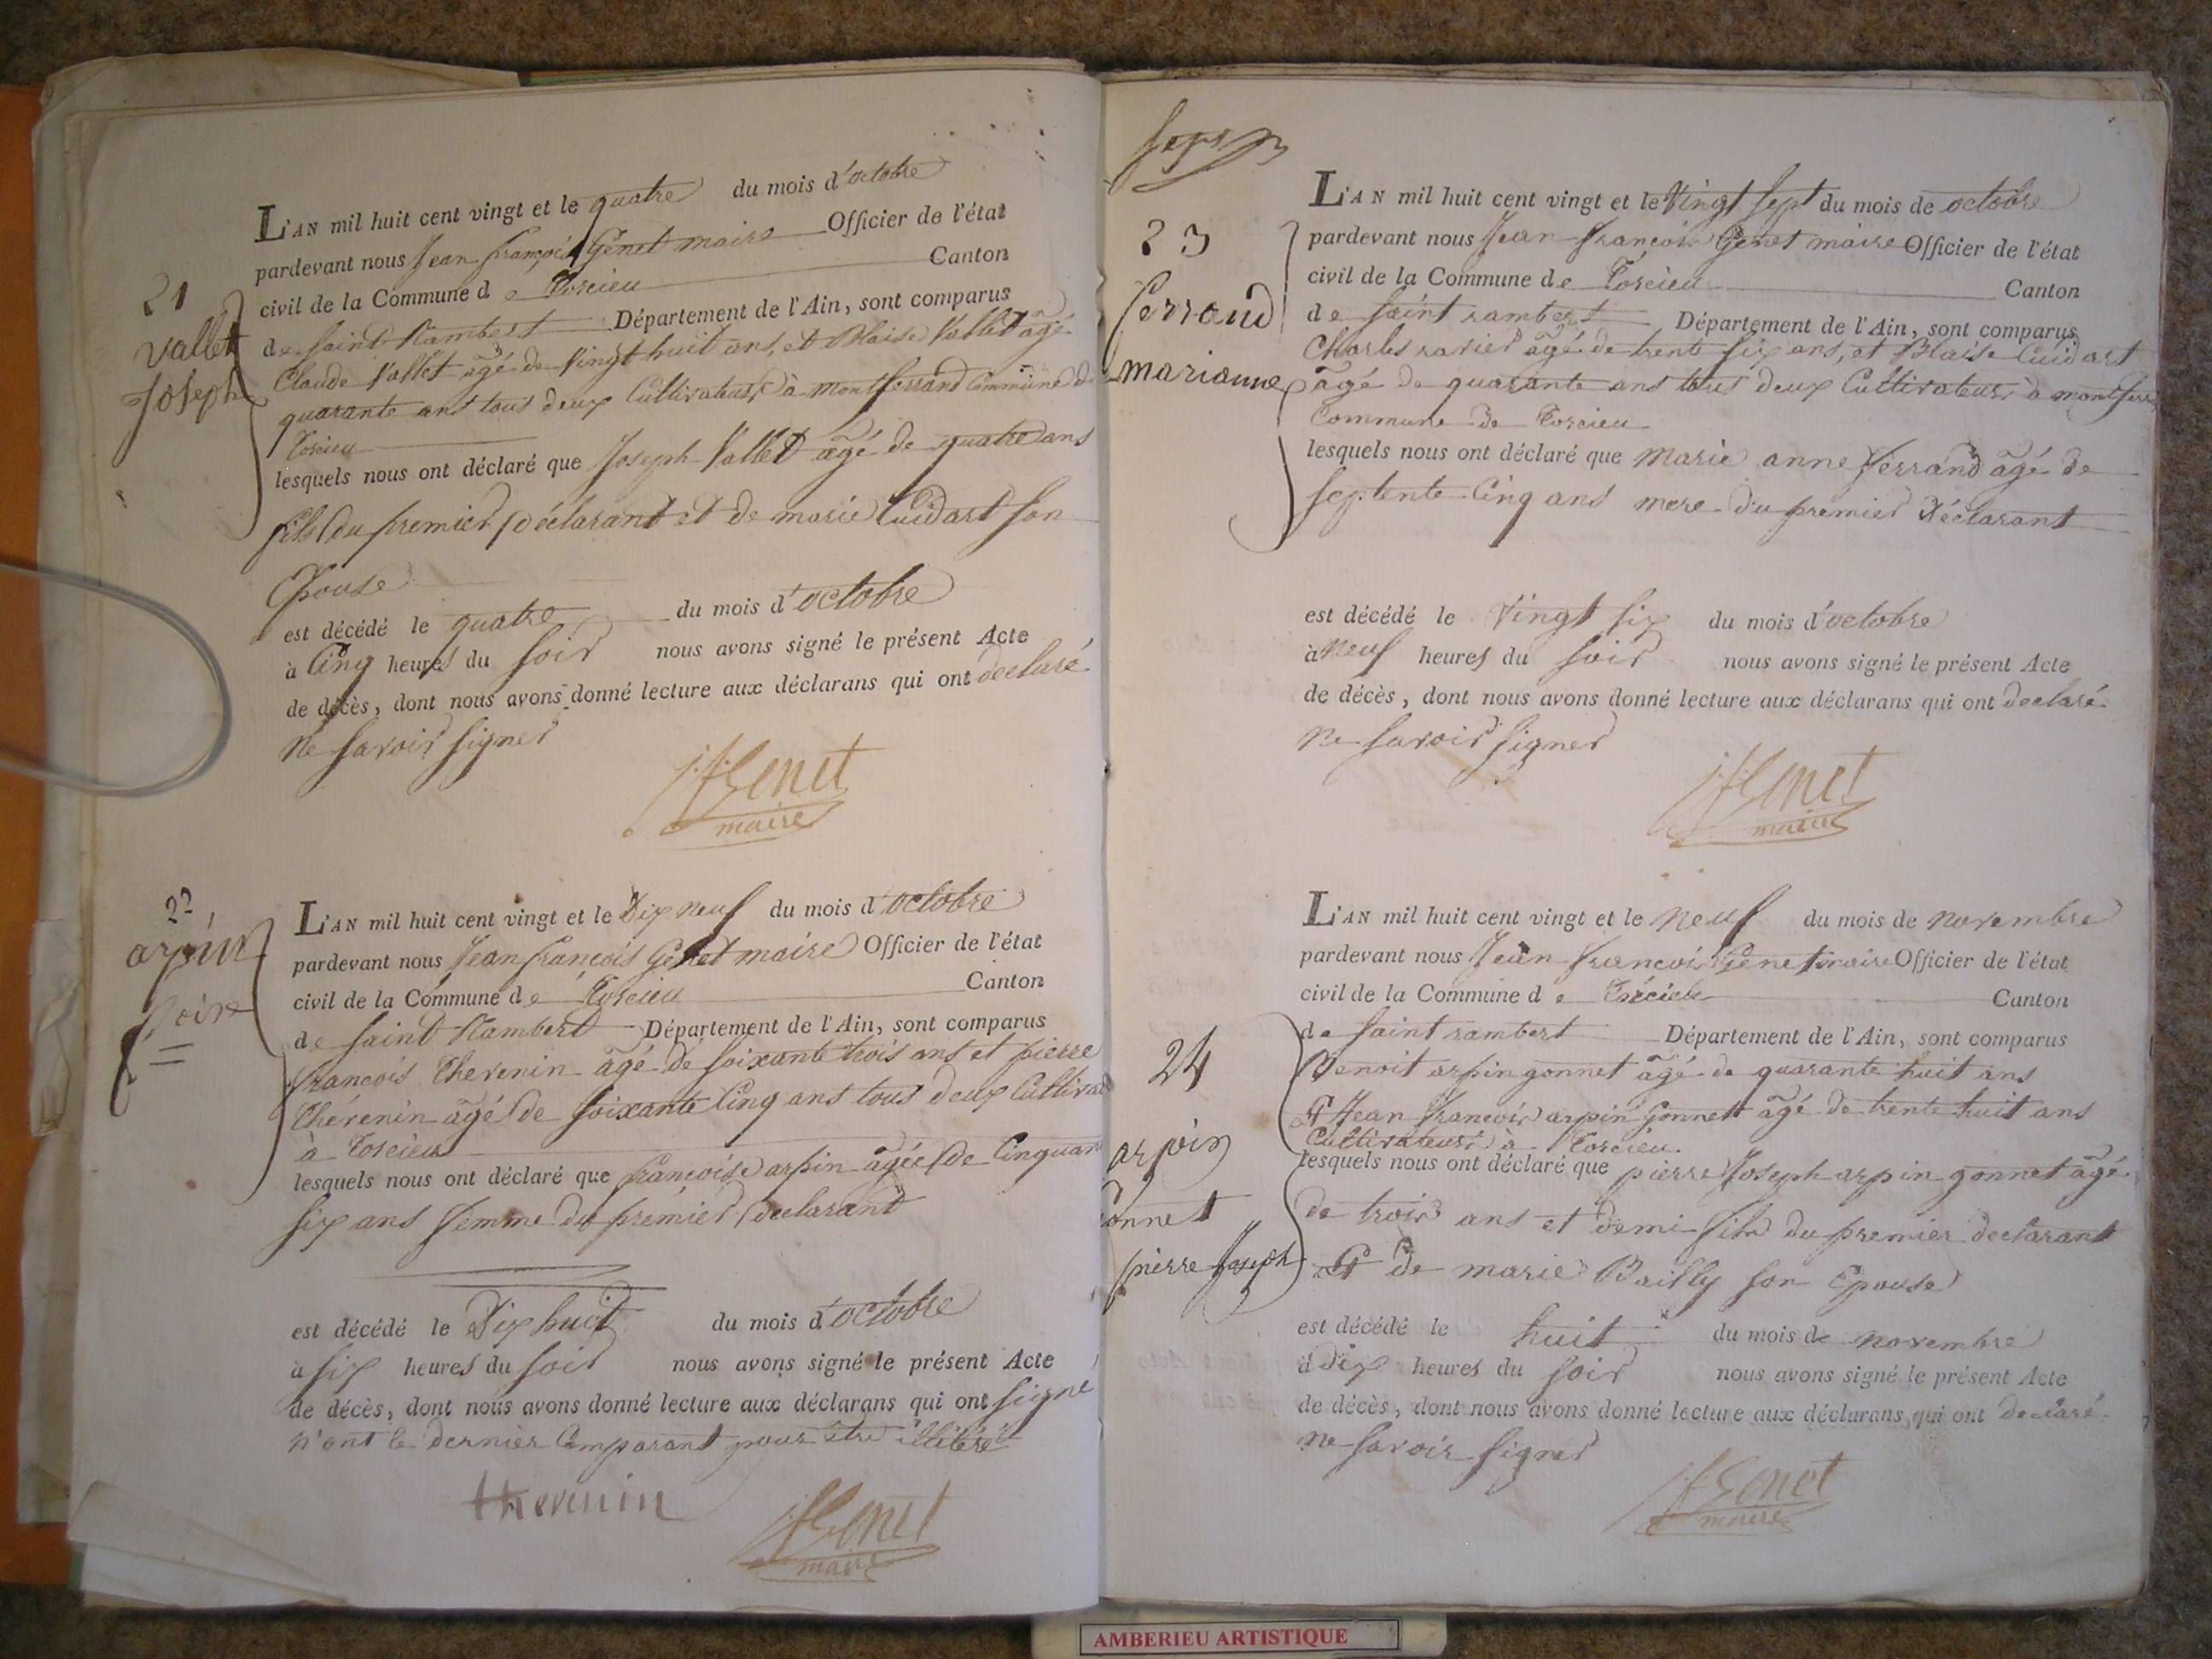 21
Vallet
Joseph
L'AN mil huit cent vingt et le quatre du mois d'octobre
pardevant nous Jean françois Genet maire Officier de l'état
civil de la Commune de Torcieu Canton
de Saint Rambert Département de l'Ain, sont comparus
Claude Vallet âgé de vingt huit ans, et Blaise Vallet âgé
quarante ans tous deux Cultivateurs à montferrand Commune de
Torcieu
lesquels nous ont déclaré que Joseph Vallet âgé de quatre ans
fils du premier déclarant et de marie Cuidart son
Epouse
est décédé le quatre du mois d'octobre
à Cinq heures du soir nous avons signé le présent Acte
de décès, dont nous avons donné lecture aux déclarans qui ont declaré
ne savoir signer
JfGenet
maire
22
arpin
L'AN mil huit cent vingt et le Dix neuf du mois d'octobre
pardevant nous Jean françois Genet maire Officier de l'état
civil de la Commune de Torcieu Canton
de Saint Rambert Département de l'Ain, sont comparus
françois Thevenin âgé de soixante trois ans et pierre
Thévenin âgé de soixante Cinq ans tous deux Cultivat
à Torcieu
lesquels nous ont déclaré que françoise arpin âgée de Cinquan
six ans femme du premier declarant
est décédé le Dix huit du mois d'octobre
à six heures du soir nous avons signé le présent Acte
de décès, dont nous avons donné lecture aux déclarans qui ont signe
n'ont le dernier Comparant pour être illitéré
thevenin
JfGenet
maire
23
ferrand
marianne
L'AN mil huit cent vingt et le Vingt sept du mois de octobre
pardevant nous Jean françois Genet maire Officier de l'état
civil de la Commune de Torcieu Canton
de saint rambert Département de l'Ain, sont comparus
Charles ravier âgé de trente six ans, et Blaise Cuidart
âgé de quarante ans tous deux Cultivateurs à montferr
Commune de Torcieu
lesquels nous ont déclaré que marie anne ferrand âgé de
septente Cinq ans mere du premier Déclarant
est décédé le Vingt six du mois d'octobre
à neuf heures du soir nous avons signé le présent Acte
de décès, dont nous avons donné lecture aux déclarans qui ont declaré
ne savoir signer
JfGenet
maire
24
arpin
onnet
pierre Joseph
L'AN mil huit cent vingt et le neuf du mois de novembre
pardevant nous Jean françois Genet maire Officier de l'état
civil de la Commune de Torcieu Canton
de saint rambert Département de l'Ain, sont comparus
Benoit arpin gonnet âgé de quarante huit ans
Et Jean françois arpin gonnet âgé de trente huit ans
Cultivateurs à Torcieu
lesquels nous ont déclaré que pierre Joseph arpin gonnet âgé
de trois ans et demi fils du premier declarant
Et de marie Bailly son Epouse
est décédé le huit du mois de novembre
à dix heures du soir nous avons signé le présent Acte
de décès, dont nous avons donné lecture aux déclarans qui ont declaré
ne savoir signer
JfGenet
maire
AMBERIEU ARTISTIQUE